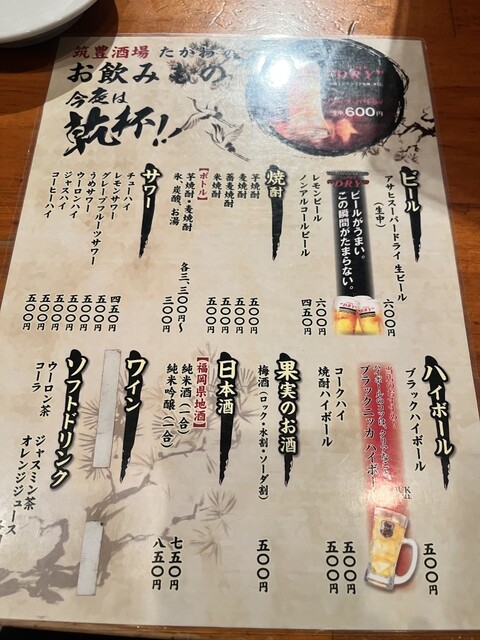 筑豊酒場 たがわの
お飲みもの
今夜は
乾杯!!
"DRY"
600円
ビール
アサヒスーパードライ 生ビール
(生中)
六〇〇円
DRY
ビールがうまい。
この瞬間がたまらない。
レモンビール
六〇〇円
ノンアルコールビール
四五〇円
焼酎
芋焼酎
五〇〇円
麦焼酎
五〇〇円
蕎麦焼酎
五〇〇円
米焼酎
五〇〇円
【ボトル】
芋焼酎・麦焼酎
各三、三〇〇円〜
氷、炭酸、お湯
三〇〇円
サワー
チューハイ
四五〇円
レモンサワー
五〇〇円
グレープフルーツサワー
五〇〇円
うめサワー
五〇〇円
ウーロンハイ
五〇〇円
ジャスハイ
五〇〇円
コーヒーハイ
五〇〇円
ハイボール
ブラックハイボール
五〇〇円
ブラックニッカ ハイボール
コークハイ
五〇〇円
焼酎ハイボール
五〇〇円
果実のお酒
梅酒(ロック・水割・ソーダ割)
五〇〇円
日本酒
【福岡県地酒】
純米酒(一合)
七五〇円
純米吟醸(一合)
八五〇円
ワイン
ソフトドリンク
ウーロン茶
コーラ
ジャスミン茶
オレンジジュース